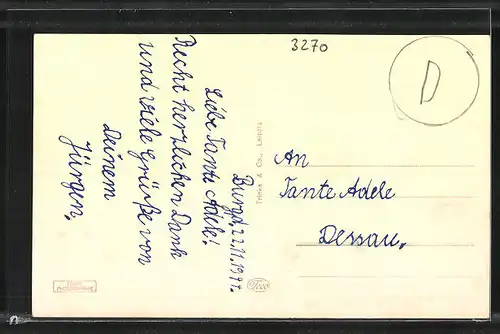 3270
D
Burgd. 22.11.1941.
Liebe Tante Adele!
Recht herzlichen Dank
und viele Grüße von
Deinem
Jürgen.
Trinks & Co., Leipzig
An
Tante Adele
Dessau.
Trco